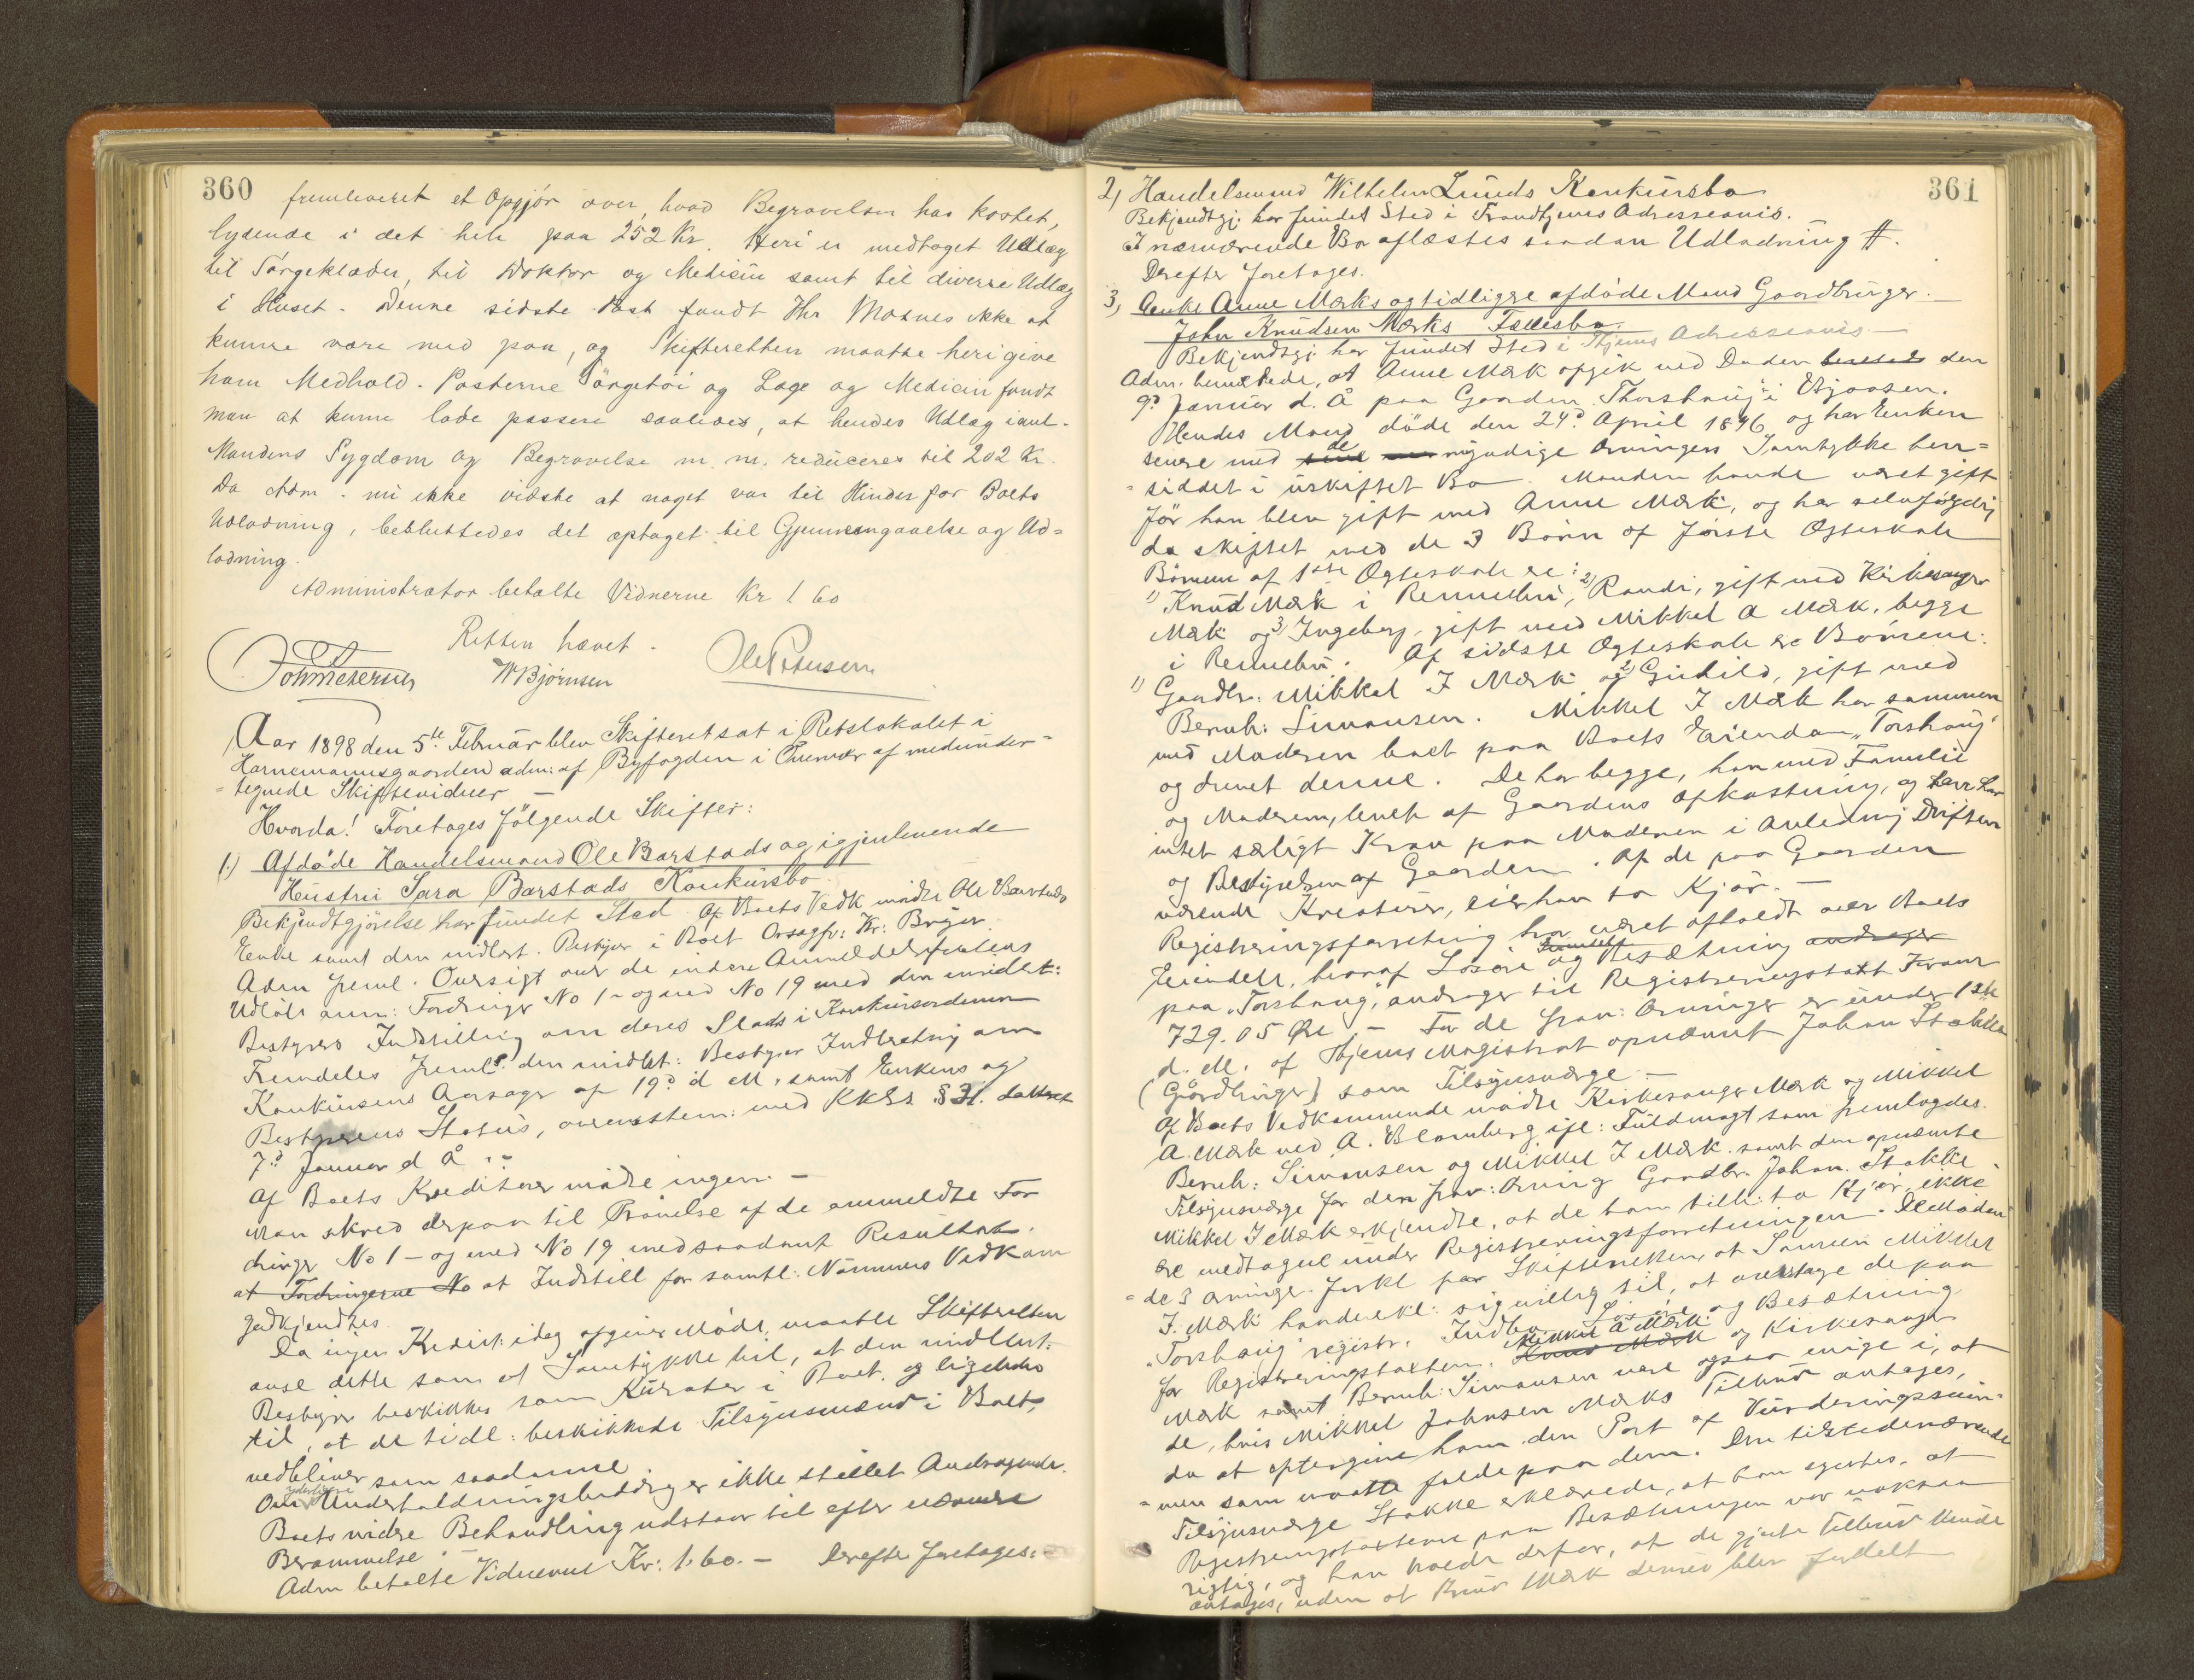 360
fremleveret et Opgjør over, hvad Begravelsen har kostet,
lydende i det hele paa 252 Kr. Heri er medtaget Udlæg
til Sørgeklæder, til Doktor og Medisin samt til diverse Udlæg
i Huset. Denne sidste Post fandt Hr Mosnes ikke at
kunne være med paa, og Skifteretten maatte heri give
ham Medhold. Posterne Sørgetøi og Læge og Medicin fandt
man at kunne lade passere saaledes, at hendes Udlæg i anl.
Mandens Sygdom og Begravelse m. m. reduceres til 202 Kr.
Da Adm. nu ikke vidste at noget var til Hinder for Boets
Udlodning, besluttedes det optaget til Gjennemgaaelse og Ud=
lodning.
Administrator betalte Vidnerne Kr 1 60
Retten hævet.
W Bjørnsen Ole Petersen
Aar 1898 den 5te Februar blev Skifteret sat i Retslokalet i
Harnemannsgaarden adm: af Byfogden i Overvær af medunder=
=tegnede Skiftevidner —
Hvorda! Foretages følgende Skifter:
1.) Afdøde Handelsmand Ole Barstads og igjenlevende
Hustru Sara Barstads Konkursbo.
Bekjendtgjørelse har fundet Sted. Af Boets Vedk mødte Ole Barstads
Enke samt den midlert. Bestyrer i Boet Orsagfr: Kr: Bryn.
Adm freml. Oversigt over de inden Anmeldelsesfristens
Udløb anm: Fordringer No 1 - og med No 19 med den midlert:
Bestyrers Indstilling om deres Plads i Konkursordenen
Fremdeles freml. den midlert: Bestyrer Indberetning om
Konkursens Aarsager af 19d d M. samt Enkens og
Bestyrerens Status, overenstem: med KKL §31. dateret
7d Januar d Å. -
Af Boets Kreditorer mødte ingen. —
Man skred derpaa til Prøvelse af de anmeldte For
dringer No 1 - og med No 19 med saadant Resultat.
at Fordringerne No at Indstill for samtl: Nummers Vedkom
godkjendtes
Da ingen Kredit: idag afgiver Møde, maatte Skifteretten
anse dette som et Samtykke til, at den midlert:
Bestyrer beskikkes som Kurator i Boet, og ligeledes
til, at de tidl: beskikkede Tilsynsmænd i Boet,
vedbliver som saadanne
Om yderligere Underholdningsbidrag er ikke stillet Andragende.
Boets videre Behandling udstaar til efter nærmere
Berammelse. —
Adm betalte Vidnerne Kr: 1.60. — Derefter foretages: -
361
2) Handelsmand Wilhelm Lunds Konkursbo
Bekjendtgj. har fundet Sted i Trondhjems Adresseavis.
I nærværende Bo aflæstes saadan Udlodning #.
Derefter foretages.
3) Enke Anne Mærks og tidligere afdøde Mand Gaardbruger
John Knudsen Mærks Fællesbo.
Bekjendtgj. har fundet Sted i Thjems Adresseavis —
Adm. bemærkede, at Anne Mærk afgik ved Døden den
9d Januar d. Å paa Gaarden Thorshaug i
Hendes Mand døde den 24d April 1896 og har Enken
senere med de myndige Arvingers Samtykke hen=
=siddet i uskiftet Bo. Manden havde været gift
før han blev gift med Anne Mærk, og har selvfølgelig
da skiftet med de 3 Børn af første Ægteskab
Børnene af 1ste Ægteskab er:
1) Knud Mærk i Rennebu, 2) Randi, gift med Kirkesanger
Mærk og 3) Ingeborg, gift med Mikkel A Mærk, begge
i Rennebu. Af sidste Ægteskab er Børnene:
1) Gaardbr: Mikkel J Mærk og 2) Gunhild, gift med
Bernh: Simonsen. Mikkel J Mærk har sammen
med Moderen boet paa Boets Eiendom "Torshaug"
og drevet denne. De har begge, han med Familie
og Moderen, levet af Gaardens Afkastning, og han har
intet særligt Krav paa Moderen i Anledning Driften
og Bestyrelsen af Gaarden. Af de paa Gaarden
værende Kreaturer, eier han to Kjør. —
Registreringsforretning har været afholdt over Boets
Eiendele, hvoraf Løsøre og Besætning andrager
paa "Torshaug", andrager til Registreringstaxt Kroner
729.05 Øre. — For de frav: Arvinger er under 12te
d. M. af Thjems Magistrat opnævnt Johan Stokke
(Gårdbruger) som Tilsynsværge —
Af Boets Vedkommende mødte Kirkesanger Mærk og Mikkel
A. Mærk ved A. Blomberg ifl: Fuldmagt som fremlagdes.
Bernh: Simonsen og Mikkel J Mærk samt den opnævnte
Tilsynsværge for den frav: Arving Gaardbr. Johan Stokke.
Mikkel J Mærk erkjendte, at de ham tilh: to Kjør, ikke
er medtagne under Registreringsforretningen. De mødende
3 Arvinge. for Skifteretten, at Sønnen Mikkel
J. Mærk havde erkl: sig villig til, at overtage de paa
"Torshaug" registr. Indbo Løsøre og Besætning
for Registreringstaxten. Mikkel A Mærk og Kirkesanger
Mærk samt Bernh: Simonsen vare ogsaa enige i, at
de, hvis Mikkel Johnsen Mærks Tilbud antages,
da at eftergive ham den Part af Vurderingssum=
=men som maatte falde paa dem. Den tilstedeværende
Tilsynsværge Stokke erklærede, at han syntes, at
Registreringstaxterne paa Besætningen var noksaa
rigtig, og han holdt derfor, at de gjorte Tilbud kunde
antages, uden at Knud Mærk derved blev forfordelt